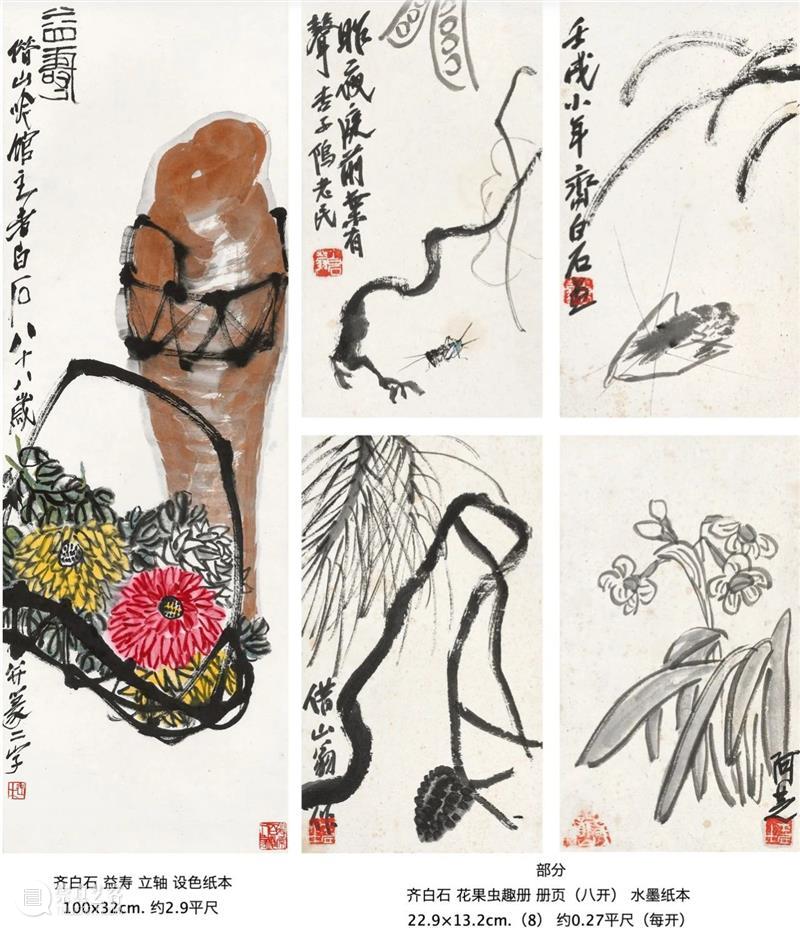 益寿
借山吟馆主者白石八十八岁
并篆二字
昨夜庭前叶有
聲杏子隖老民
壬戌小年齊白石画
借山翁作
阿芝
齐白石 益寿 立轴 设色纸本
100x32cm. 约2.9平尺
部分
齐白石 花果虫趣册 册页（八开） 水墨纸本
22.9×13.2cm.（8） 约0.27平尺（每开）